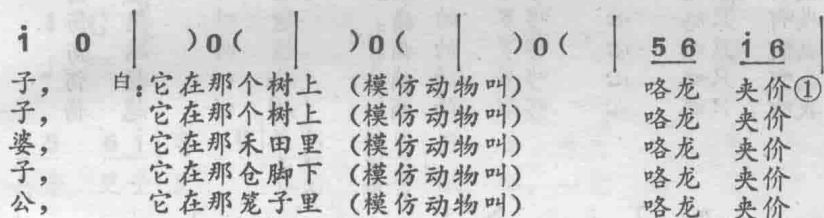 i 0 | )0( | )0( | )0( | 5 6 i 6 |
子， 白：它在那个树上 （模仿动物叫） 咯龙 夹价①
子， 它在那个树上 （模仿动物叫） 咯龙 夹价
婆， 它在那禾田里 （模仿动物叫） 咯龙 夹价
子， 它在那仓脚下 （模仿动物叫） 咯龙 夹价
公， 它在那笼子里 （模仿动物叫） 咯龙 夹价